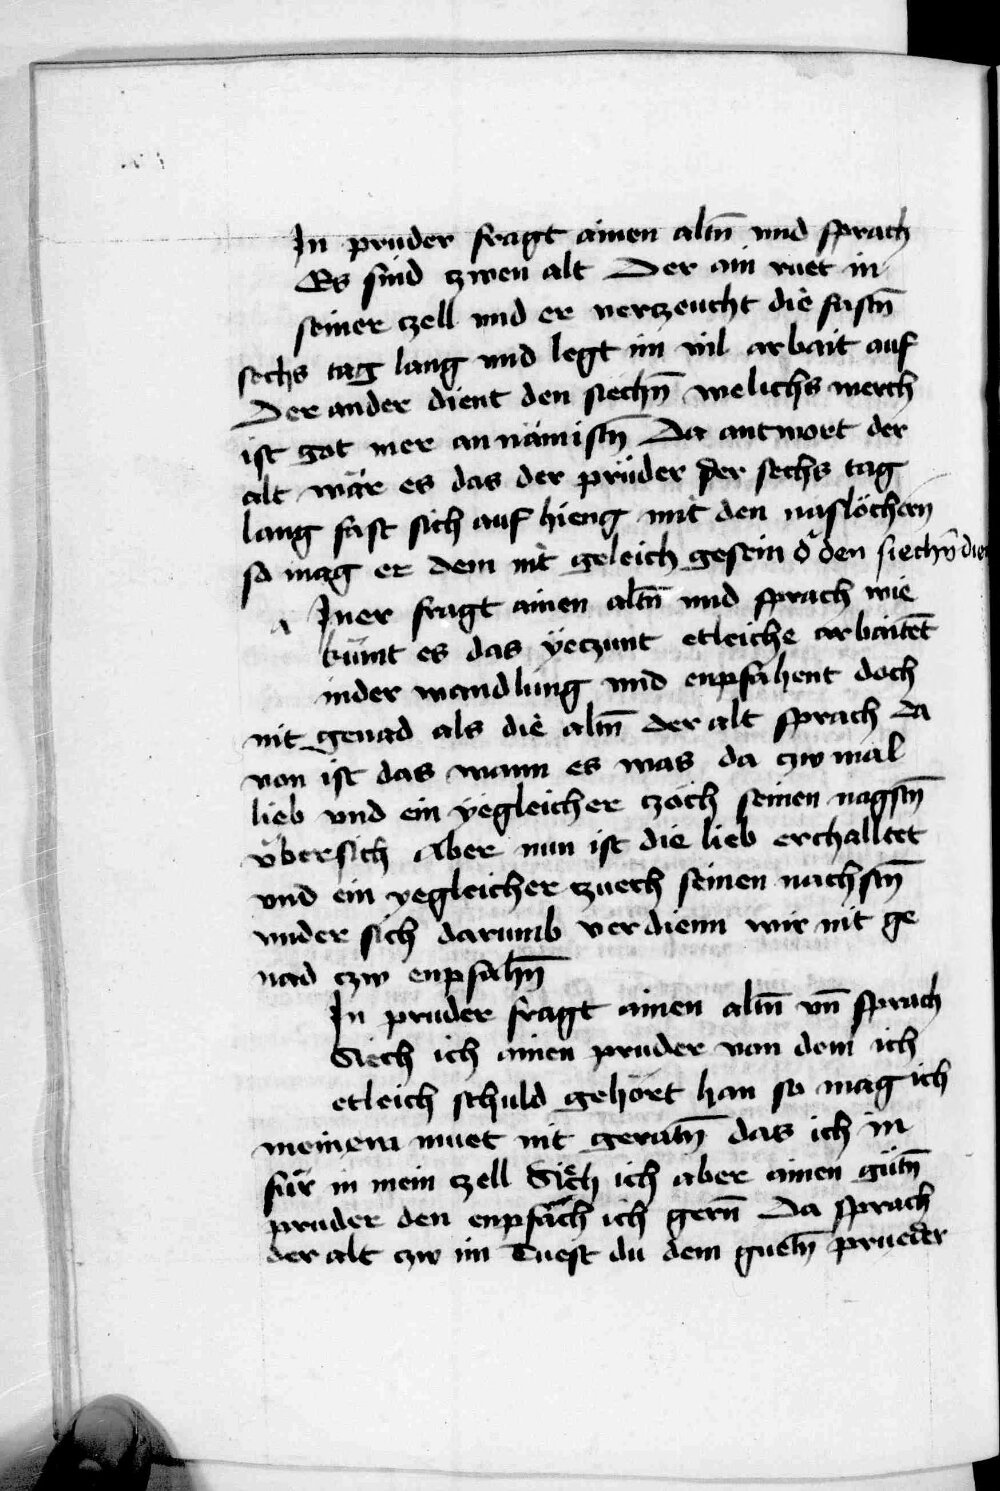 In pruder fragt ainen altn̄ vnd sprach
Es sind zwen alt Der ain ruet in
seiner czell vnd er verzeucht die fastn̄
sechs tag lang vnd legt im vil arbait auf
Der ander dient den siechn̄ welichs werch
ist got mer an nämistn̄ Da antwort der
alt wär es das der prüder der sechs tag
lang fast sich auf hieng mit den naslöchern
so mag er dem nit geleich gesein d' den siechn̄ die
a Iner fragt ainen altn̄ vnd sprach wie
kümt es das yeczunt etleiche arbaitēt
inder wandlung vnd enpfahent doch
nit genad als die altn̄ der alt sprach da
von ist das wann es was da czw mal
lieb vnd ein yegleicher czoch seinen nagstn̄
übersich Aber nun ist die lieb erchalltet
vnd ein yegleicher zuech seinen nachstn̄
vnder sich darumb verdienn wir nit ge
nad czw enpfahn̄
In pruder fragt ainen altn̄ vn̄ sprach
Siech ich ainen pruder von dem ich
etleich schuld gehört han so mag ich
meinem muet nit geratn̄ das ich in
für in mein czell Siech ich aber ainen gütn̄
pruder den enpfäch ich gern̄ Da sprach
der alt czw im Tuest du dem guetn̄ prueder